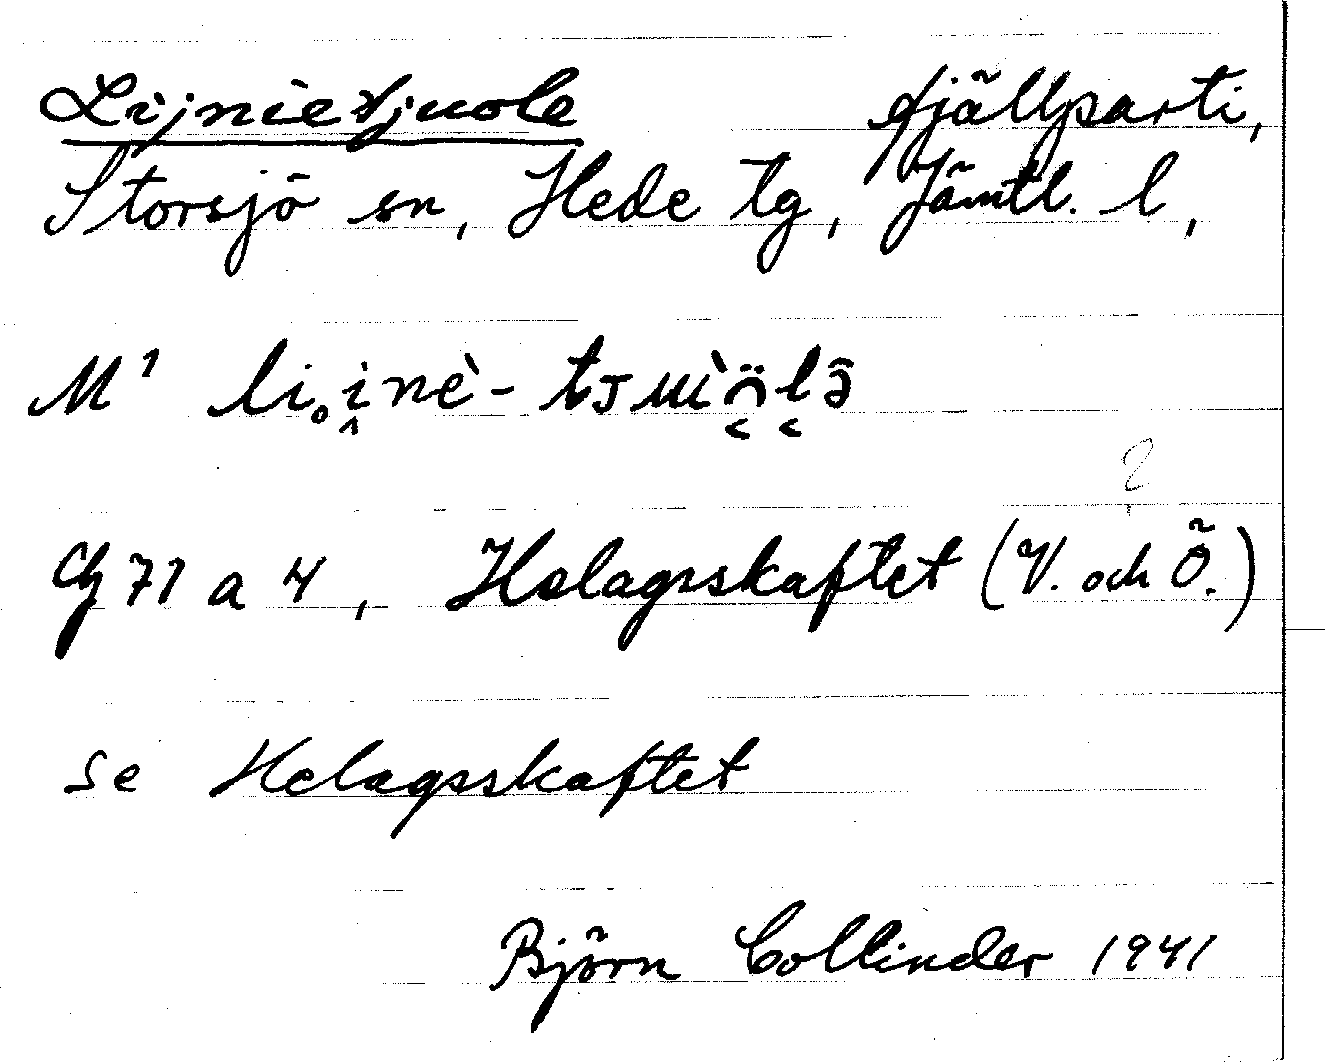 Lijnietjuole fjällparti,
Storsjö sn, Hede tg, Jämtl. l,
M1
71 a 4, Helagsskaftet (V. och Ö.)
?
se Helagsskaftet
Björn Collinder 1941